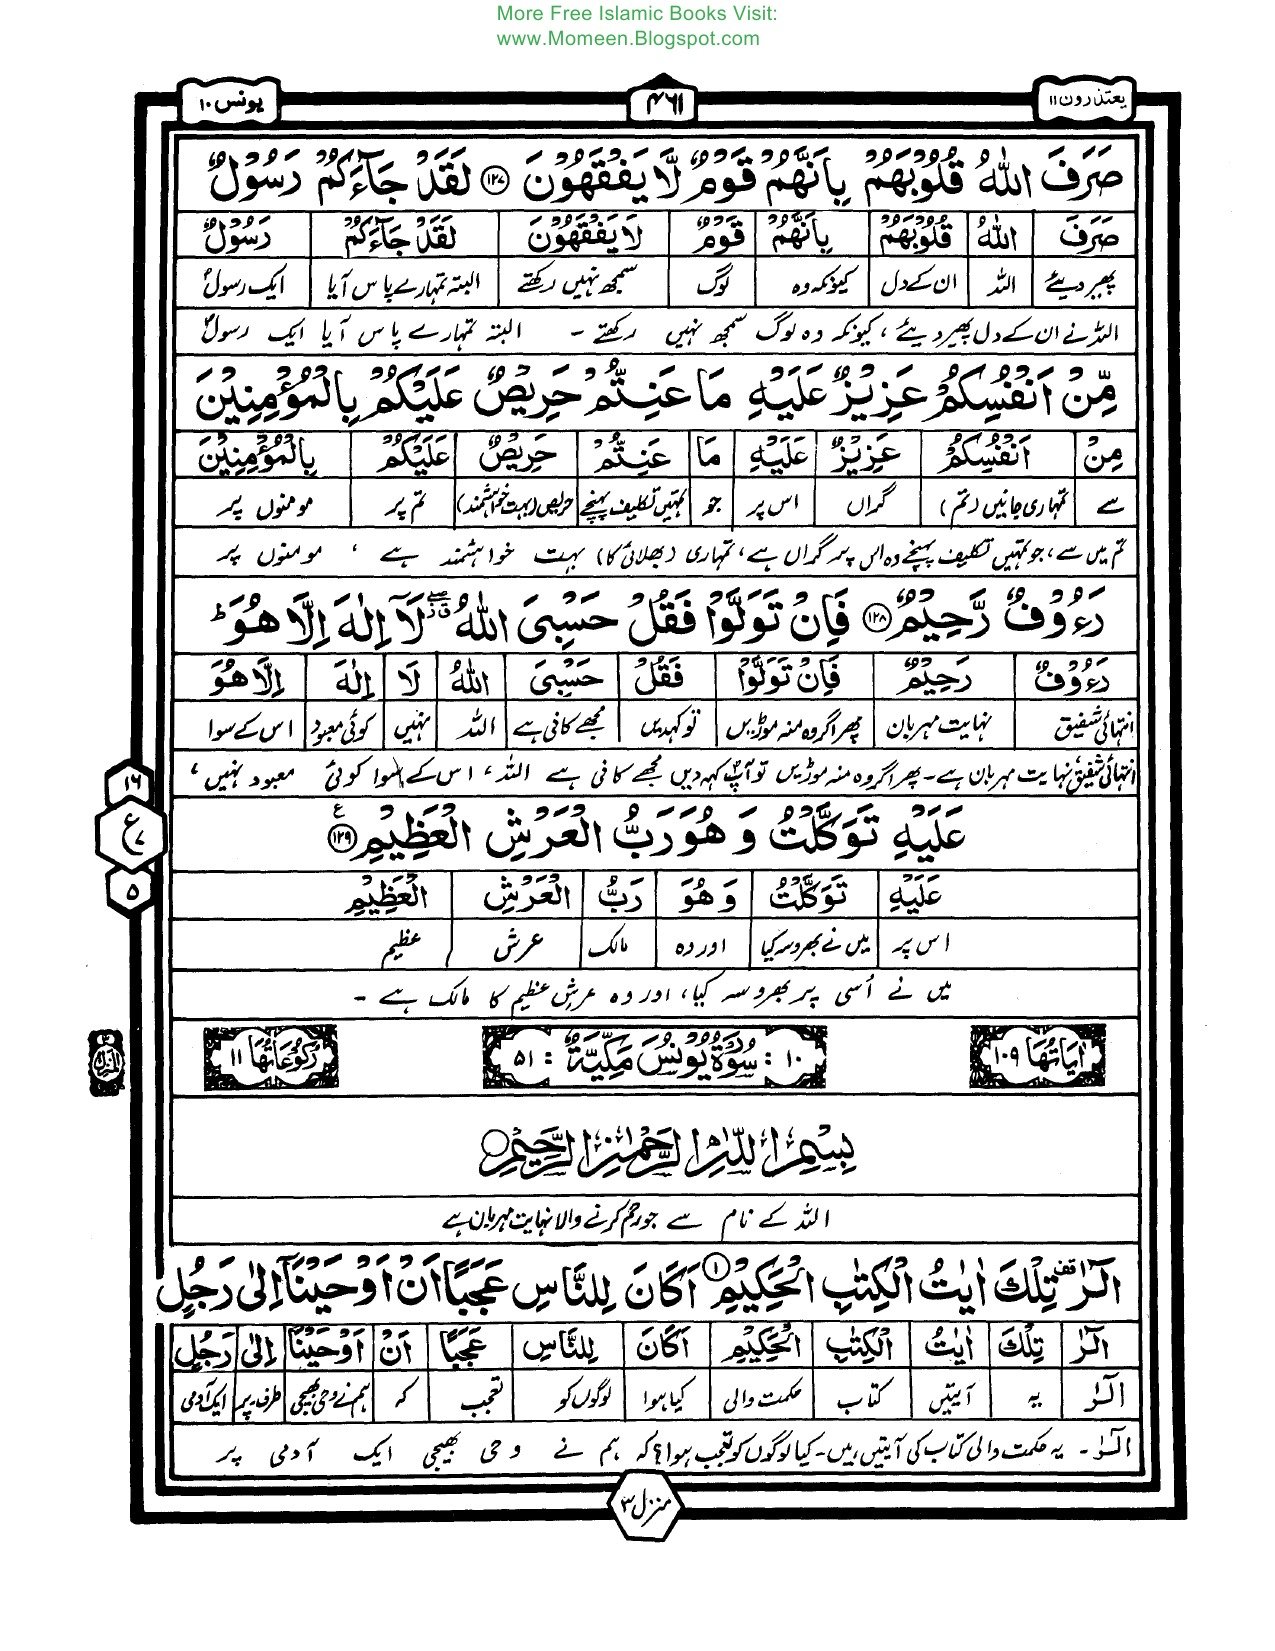 More Free Islamic Books Visit:
www.Momeen.Blogspot.com
یعتذرون ۱۱ ۴۶۱ یونس ۱۰
صَرَفَ اللّٰهُ قُلُوْبَهُمْ بِاَنَّهُمْ قَوْمٌ لَّا يَفْقَهُوْنَ ﴿۱۲۷﴾ لَقَدْ جَآءَكُمْ رَسُوْلٌ
صَرَفَ اللّٰهُ قُلُوْبَهُمْ بِاَنَّهُمْ قَوْمٌ لَا يَفْقَهُوْنَ لَقَدْ جَآءَكُمْ رَسُوْلٌ
پھیر دیئے اللہ ان کے دل کیونکہ وہ لوگ سمجھ نہیں رکھتے البتہ تمہارے پاس آیا ایک رسولؐ
اللہ نے ان کے دل پھیر دیئے ، کیونکہ وہ لوگ سمجھ نہیں رکھتے - البتہ تمہارے پاس آیا ایک رسولؐ
مِّنْ اَنْفُسِكُمْ عَزِيْزٌ عَلَيْهِ مَا عَنِتُّمْ حَرِيْصٌ عَلَيْكُمْ بِالْمُؤْمِنِيْنَ
مِنْ اَنْفُسِكُمْ عَزِيْزٌ عَلَيْهِ مَا عَنِتُّمْ حَرِيْصٌ عَلَيْكُمْ بِالْمُؤْمِنِيْنَ
سے تمہاری جانیں (تم) گراں اس پر جو تمہیں تکلیف پہنچے حریص (بہت خواہشمند) تم پر مومنوں پر
تم میں سے ، جو تمہیں تکلیف پہنچے وہ اس پر گراں ہے ، تمہاری (بھلائی کا) بہت خواہشمند ہے ، مومنوں پر
رَءُوْفٌ رَّحِيْمٌ ﴿۱۲۸﴾ فَاِنْ تَوَلَّوْا فَقُلْ حَسْبِىَ اللّٰهُ لَآ اِلٰهَ اِلَّا هُوَ ؕ
رَءُوْفٌ رَحِيْمٌ فَاِنْ تَوَلَّوْا فَقُلْ حَسْبِىَ اللّٰهُ لَا اِلٰهَ اِلَّا هُوَ
انتہائی شفیق نہایت مہربان پھر اگر وہ منہ موڑیں تو کہدیں مجھے کافی ہے اللہ نہیں کوئی معبود اس کے سوا
انتہائی شفیق نہایت مہربان ہے - پھر اگر وہ منہ موڑیں تو آپؐ کہہ دیں مجھے کافی ہے اللہ ، اس کے سوا کوئی معبود نہیں ،
عَلَيْهِ تَوَكَّلْتُ وَ هُوَ رَبُّ الْعَرْشِ الْعَظِيْمِ ﴿۱۲۹﴾ ع
۱۶
ع ۷
۵
عَلَيْهِ تَوَكَّلْتُ وَ هُوَ رَبُّ الْعَرْشِ الْعَظِيْمِ
اس پر میں نے بھروسہ کیا اور وہ مالک عرش عظیم
میں نے اُسی پر بھروسہ کیا ، اور وہ عرشِ عظیم کا مالک ہے -
اٰيَاتُهَا ۱۰۹ ۱۰ : سُوْرَةُ يُوْنُسَ مَكِّيَّةٌ : ۵۱ رُكُوْعَاتُهَا ۱۱
بِسْمِ اللّٰهِ الرَّحْمٰنِ الرَّحِيْمِ
اللہ کے نام سے جو رحم کرنے والا نہایت مہربان ہے
الٓرٰ تِلْكَ اٰيٰتُ الْكِتٰبِ الْحَكِيْمِ ﴿۱﴾ اَكَانَ لِلنَّاسِ عَجَبًا اَنْ اَوْحَيْنَآ اِلٰى رَجُلٍ
الٓرٰ تِلْكَ اٰيٰتُ الْكِتٰبِ الْحَكِيْمِ اَكَانَ لِلنَّاسِ عَجَبًا اَنْ اَوْحَيْنَا اِلٰى رَجُلٍ
الٓرٰ یہ آیتیں کتاب حکمت والی کیا ہوا لوگوں کو تعجب کہ ہم نے وحی بھیجی طرف - پر ایک آدمی
الٓرٰ - یہ حکمت والی کتاب کی آیتیں ہیں - کیا لوگوں کو تعجب ہوا ؟ کہ ہم نے وحی بھیجی ایک آدمی پر
منزل ۳